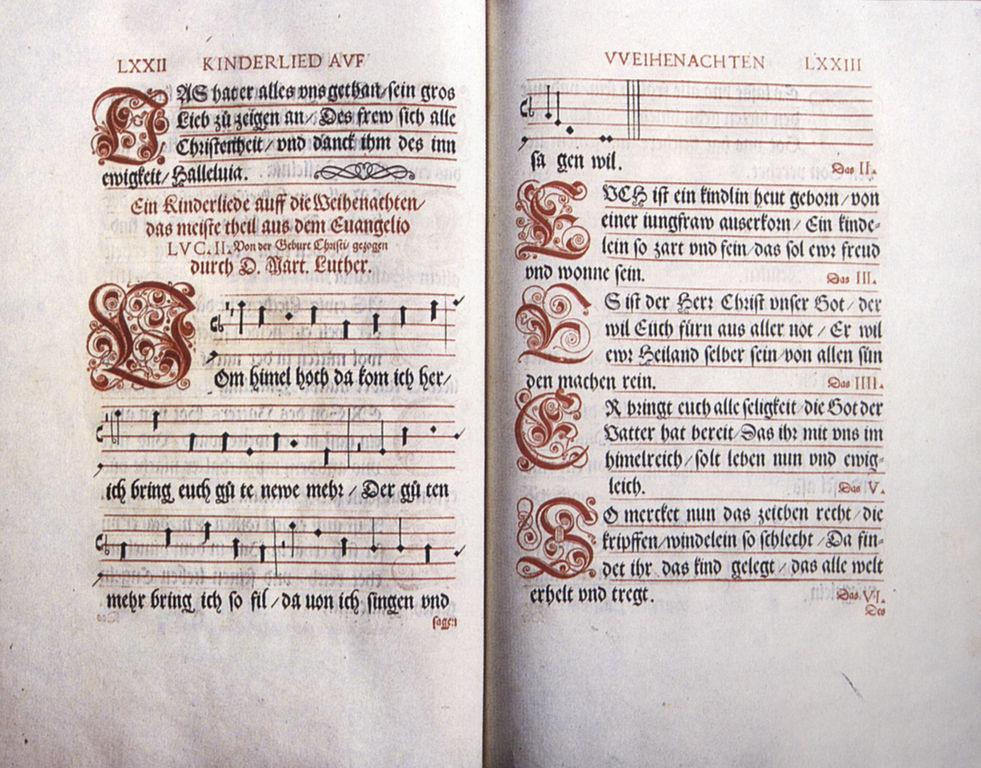 LXXII KINDERLIED AVF
DAS hat er alles vns gethan/sein gros
Lieb zů zeigen an/ Des frew sich alle
Christenheit/ vnd danck ihm des inn
ewigkeit/ Halleluia.
Ein Kinderliede auff die Weihenachten/
das meiste theil aus dem Euangelio
LVC. II. Von der Geburt Christi/ gezogen
durch D. Mart. Luther.
VOm himel hoch da kom ich her/
ich bring euch gů te newe mehr/ Der gů ten
mehr bring ich so fil/ da uon ich singen vnd
sagen
VVEIHENACHTEN LXXIII
sa gen wil.
Das II.
EVCH ist ein kindlin heut geborn/ von
einer iungfraw auserkorn/ Ein kinde-
lein so zart vnd fein/ das sol ewr freud
vnd wonne sein.
Das III.
ES ist der Herr Christ vnser Got/ der
wil Euch fürn aus aller not/ Er wil
ewr Heiland selber sein/ von allen sün
den machen rein.
Das IIII.
ER bringt euch alle seligkeit/ die Got der
Vatter hat bereit/ Das ihr mit vns im
himelreich/ solt leben nun vnd ewig-
leich.
Das V.
SO mercket nun das zeichen recht/ die
kripffen/ windelein so schlecht/ Da fin-
det ihr das kind gelegt/ das alle welt
erhelt vnd tregt.
Das VI.
Des